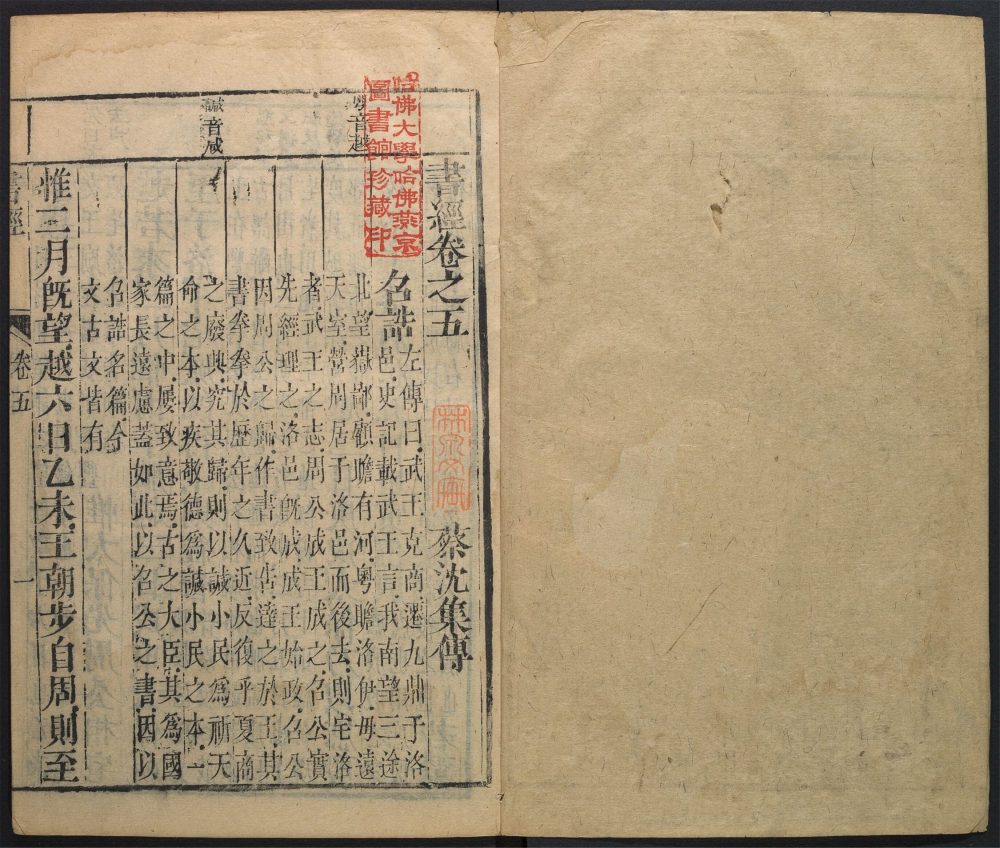 書經卷之五
蔡沈集傳
召誥
左傳曰武王克商遷九鼎于洛
邑史記載武王言我南望三途
北望嶽鄙顧瞻有河粵瞻洛伊毋遠
天室營周居于洛邑而後去則宅洛
者武王之志周公成王成之召公實
先經理之洛邑既成成王始政召公
因周公之歸作書致告達之於王其
書拳拳於歷年之久近反復乎夏商
之廢興究其歸則以諴小民為祈天
命之本以疾敬德為諴小民之本一
篇之中屢致意焉古之大臣其為國
家長遠慮蓋如此以召公之書因以
召誥名篇今
文古文皆有
惟二月既望越六日乙未王朝步自周則至
音越
諴音咸
哈佛大學哈佛燕京
圖書館珍藏印
書經
卷五
一